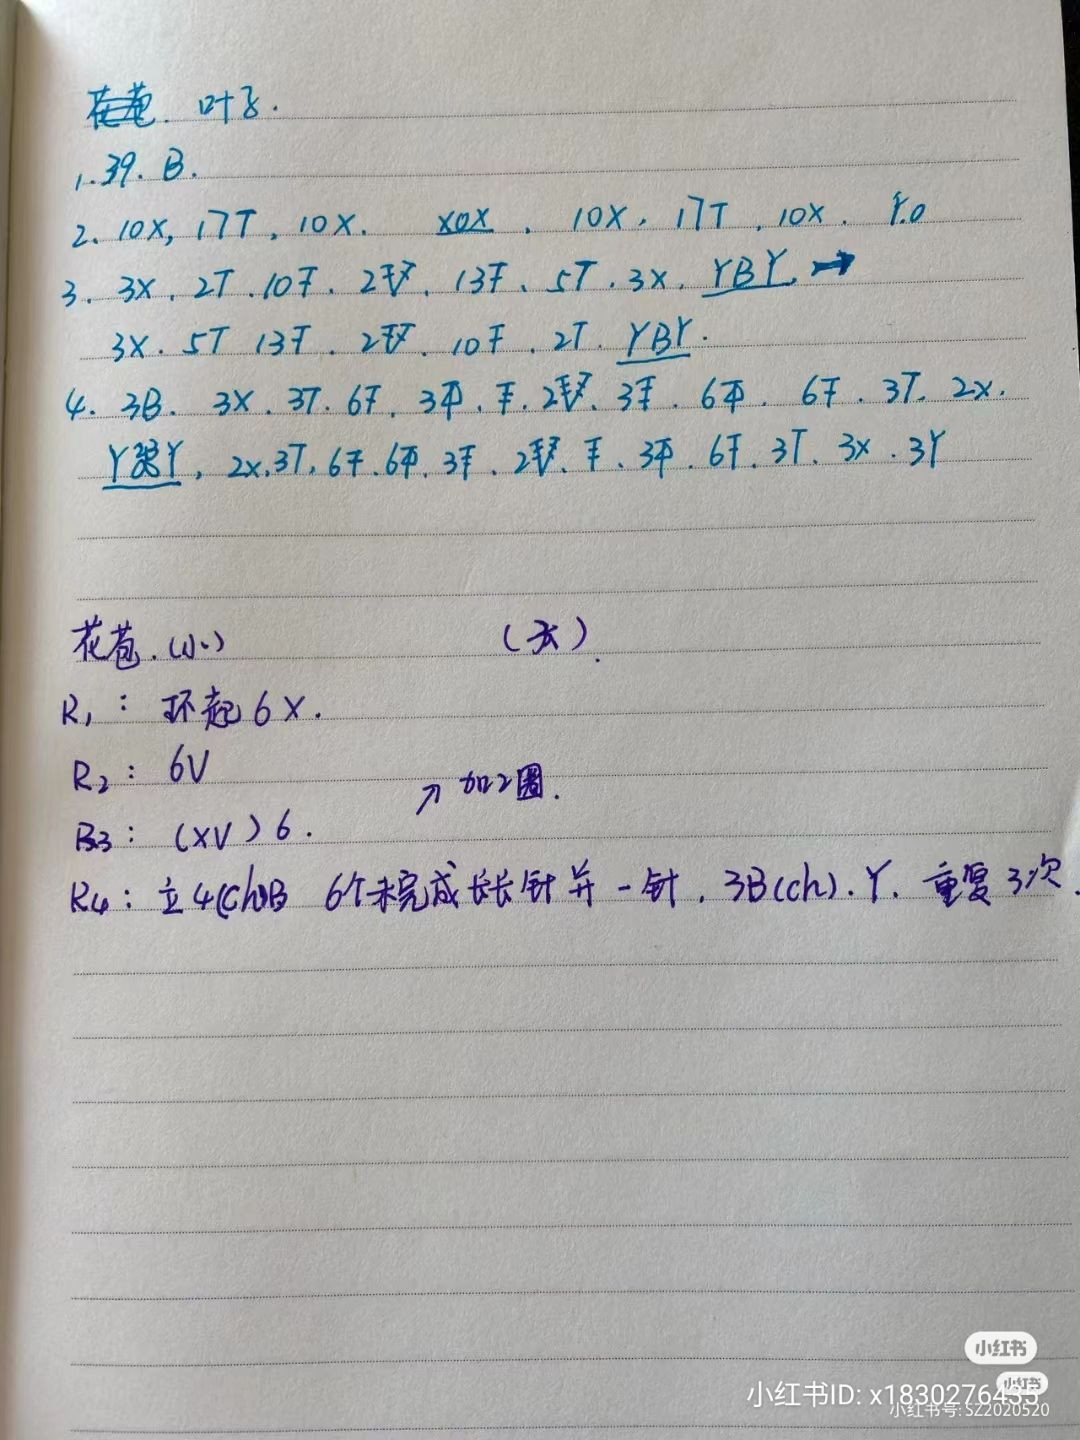 叶子.
1. 39. B.
2. 10X, 17T, 10X. XOX, 10X, 17T, 10X. Y.O
3. 3X. 2T. 10F. 2F. 13F. 5T. 3X. YBY. →
3X. 5T 13F. 2F. 10F. 2T. YBY.
4. 3B. 3X. 3T. 6F. 3 6F. 3T. 2X.
Y Y, 2X. 3T. 6F. 6F. 3T. 3X. 3Y
花苞.(小) (大).
R1: 环起6X.
R2: 6V
↗ 加2圈.
R3: (XV)6.
R4: 立4(ch)B 6个未完成长长针并一针, 3B(ch). Y. 重复3次.
小红书
小红书
小红书ID: x1830276435
小红书号: SZ2020520